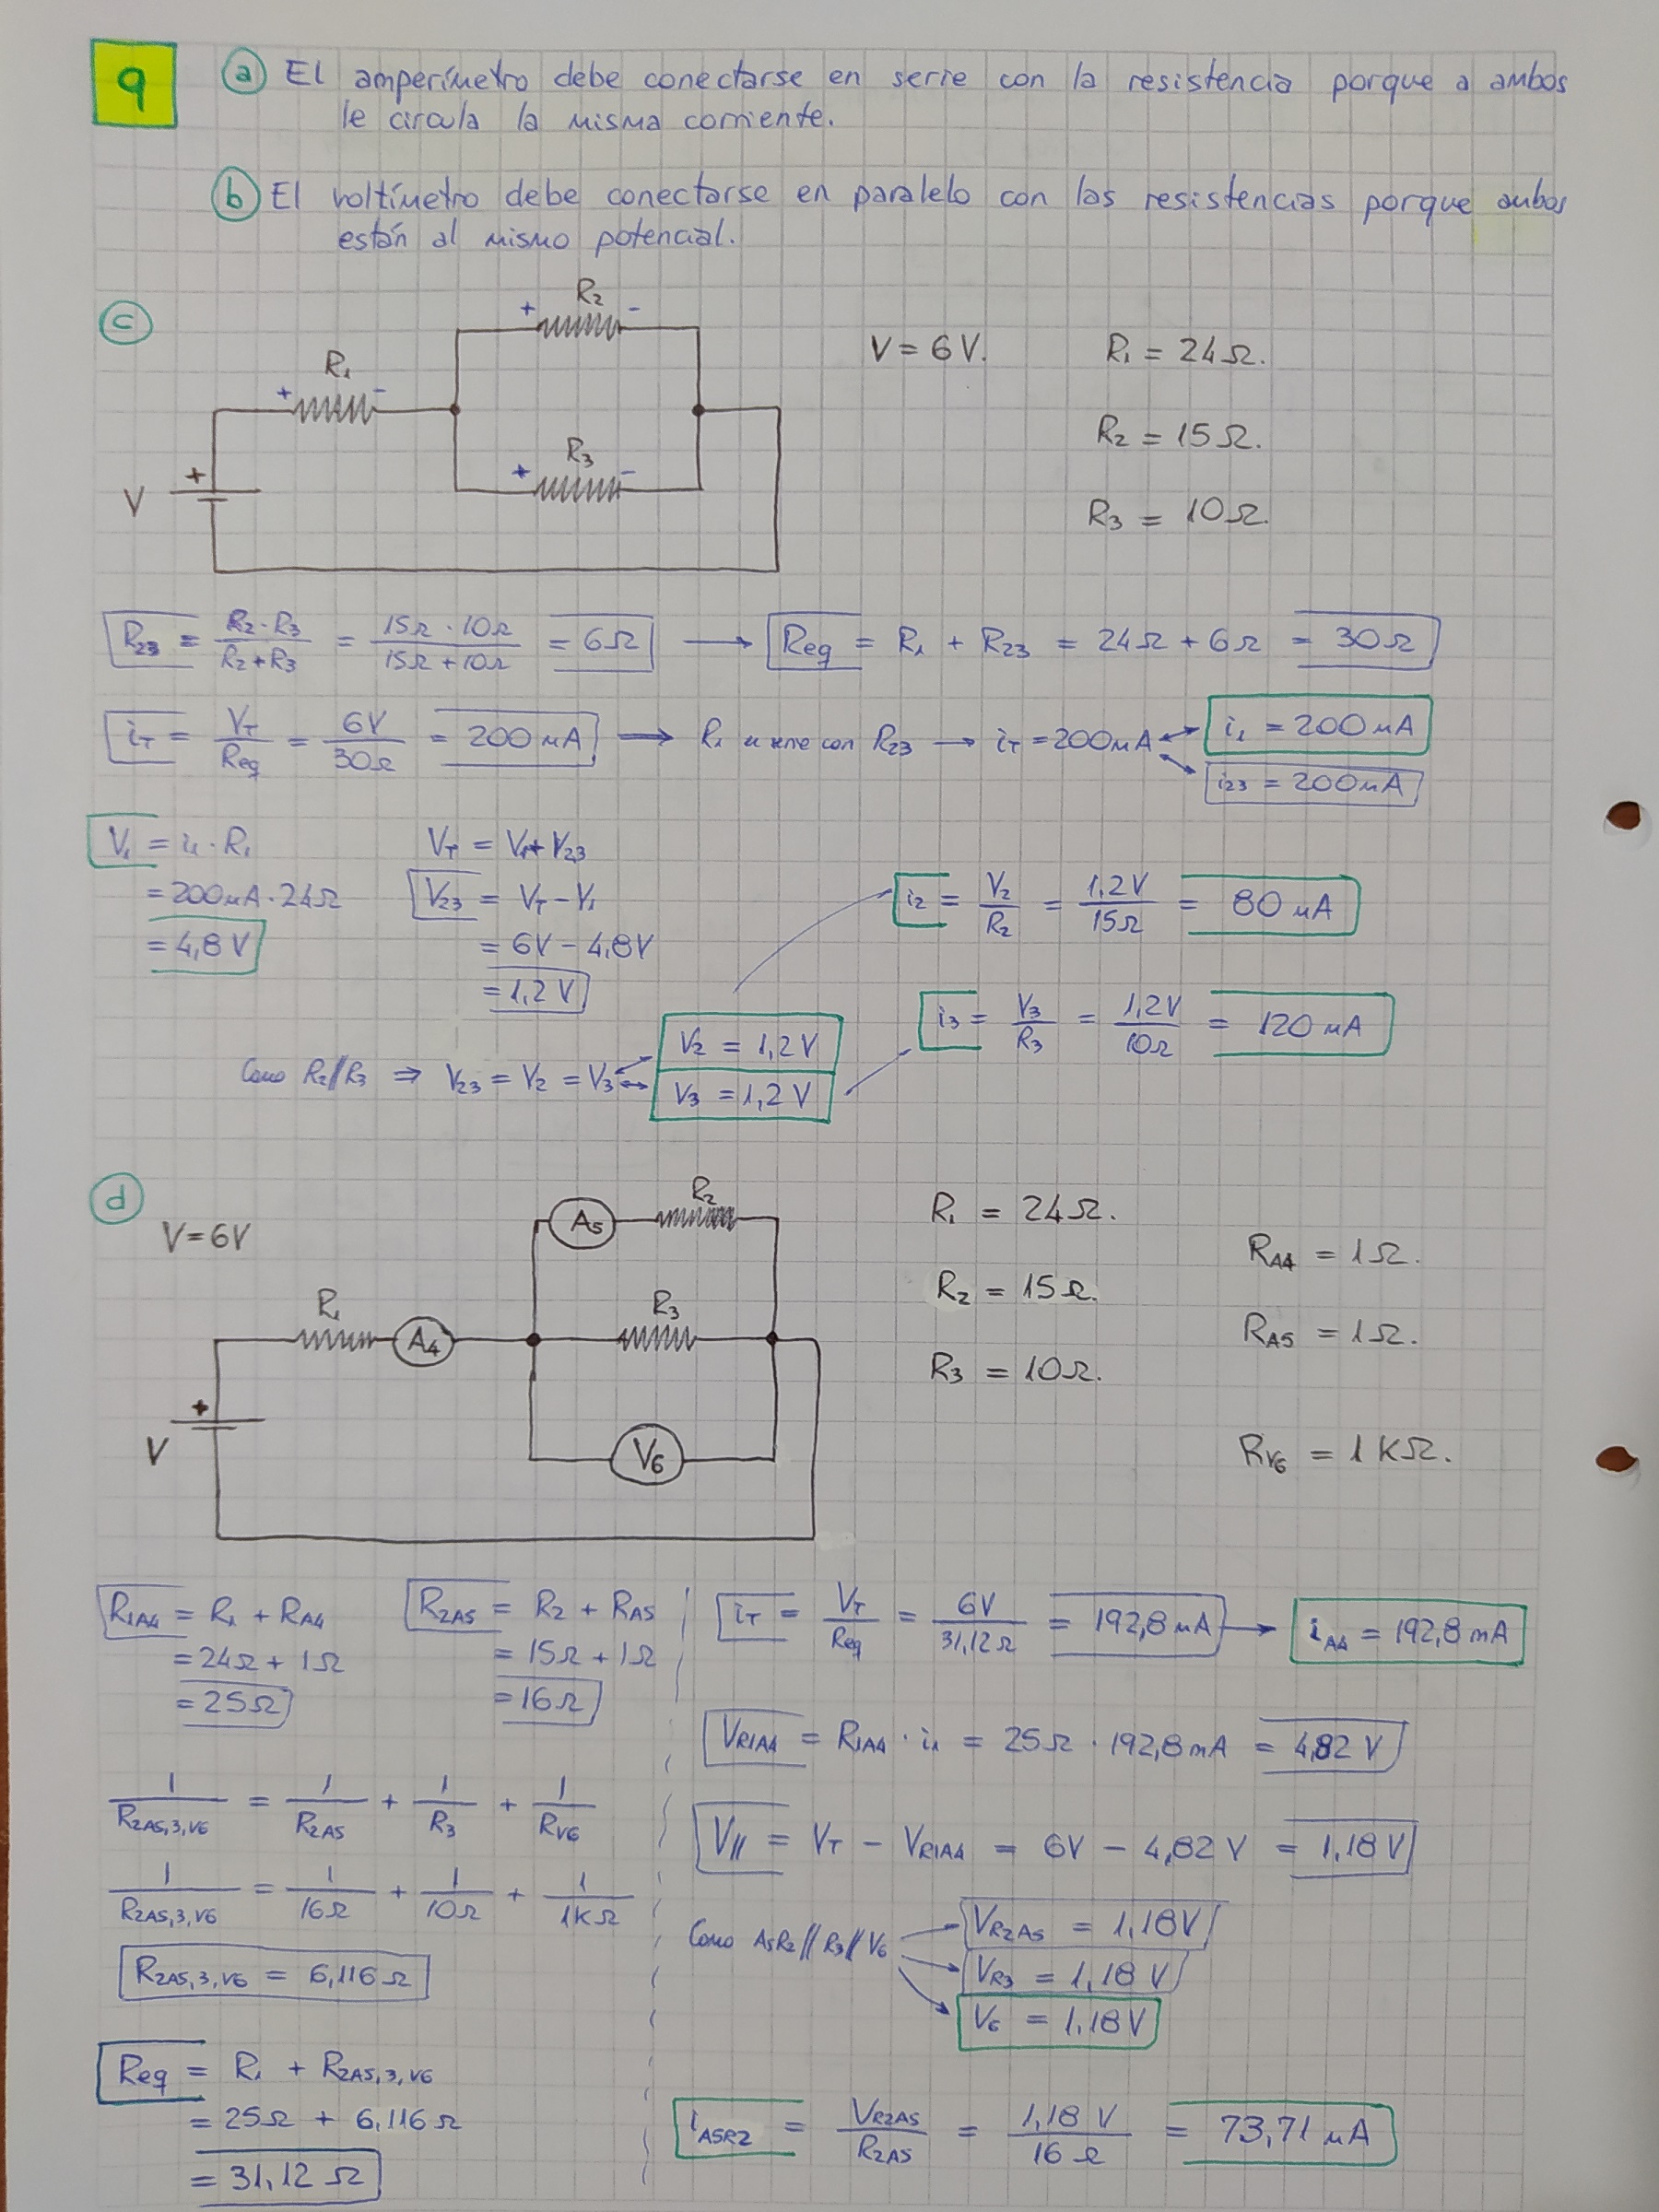 9
a) El amperímetro debe conectarse en serie con la resistencia porque a ambos
le circula la misma corriente.
b) El voltímetro debe conectarse en paralelo con las resistencias porque ambos
están al mismo potencial.
c)
R₂
+ -
R₁
+ -
R₃
+ -
+
V
V = 6 V.
R₁ = 24 Ω.
R₂ = 15 Ω.
R₃ = 10 Ω.
R₂₃ = R₂·R₃ / R₂+R₃ = 15Ω · 10Ω / 15Ω + 10Ω = 6Ω → Req = R₁ + R₂₃ = 24Ω + 6Ω = 30Ω
i_T = V_T / Req = 6V / 30Ω = 200 mA → R₁ en serie con R₂₃ → i_T = 200mA
i₁ = 200 mA
i₂₃ = 200mA
V₁ = i₁ · R₁
= 200mA · 24Ω
= 4,8 V
V_T = V₁ + V₂₃
V₂₃ = V_T - V₁
= 6V - 4,8V
= 1,2 V
i₂ = V₂ / R₂ = 1,2V / 15Ω = 80 mA
i₃ = V₃ / R₃ = 1,2V / 10Ω = 120 mA
Como R₂//R₃ ⇒ V₂₃ = V₂ = V₃
V₂ = 1,2V
V₃ = 1,2 V
d)
V=6V
A₅
R₂
R₁
A₄
R₃
+
V
V₆
R₁ = 24Ω.
R₂ = 15Ω.
R₃ = 10Ω.
R_A4 = 1Ω.
R_A5 = 1Ω.
R_V6 = 1 KΩ.
R₁A4 = R₁ + R_A4
= 24Ω + 1Ω
= 25Ω
R₂A5 = R₂ + R_A5
= 15Ω + 1Ω
= 16Ω
1 / R₂A5,3,V6 = 1 / R₂A5 + 1 / R₃ + 1 / R_V6
1 / R₂A5,3,V6 = 1 / 16Ω + 1 / 10Ω + 1 / 1KΩ
R₂A5,3,V6 = 6,116Ω
Req = R₁ + R₂A5,3,V6
= 25Ω + 6,116Ω
= 31,12 Ω
i_T = V_T / Req = 6V / 31,12Ω = 192,8 mA → i_A4 = 192,8 mA
V_R1A4 = R₁A4 · i₁ = 25Ω · 192,8mA = 4,82 V
V// = V_T - V_R1A4 = 6V - 4,82 V = 1,18 V
Como A₅R₂//R₃//V₆
V_R2A5 = 1,18V
V_R3 = 1,18 V
V₆ = 1,18V
i_A5R2 = V_R2A5 / R₂A5 = 1,18 V / 16 Ω = 73,71 mA